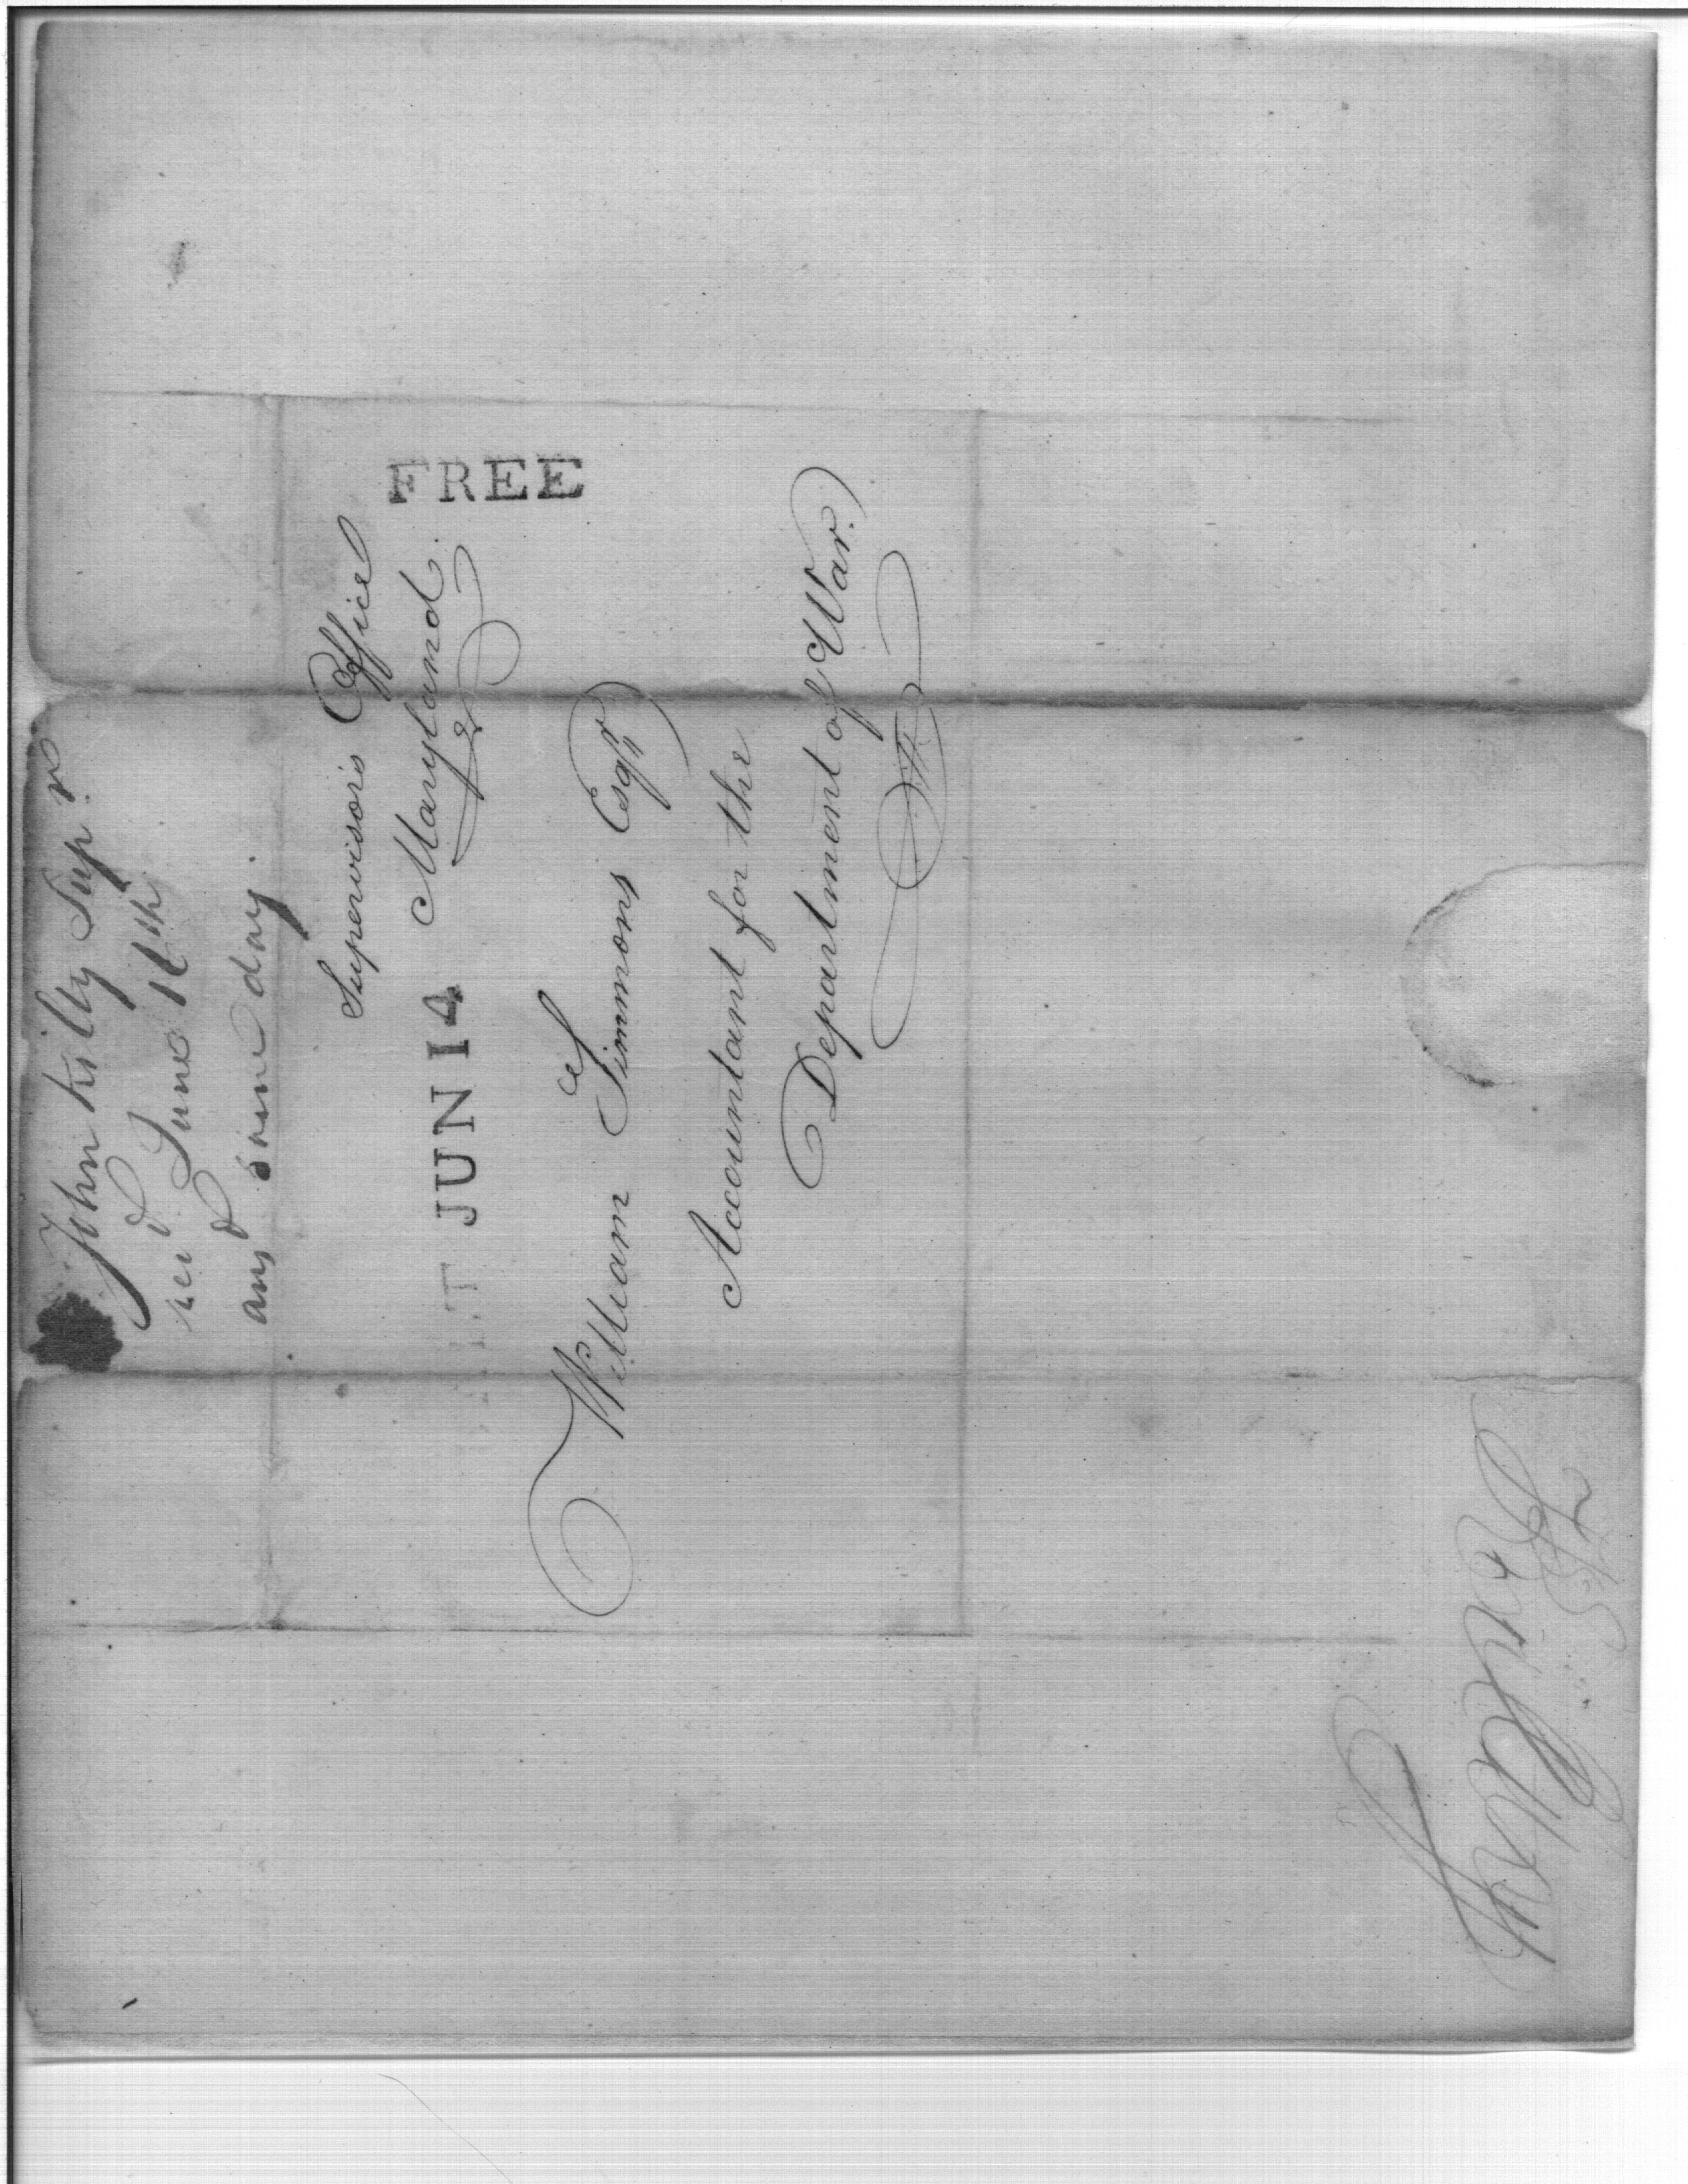 John Kilty Sup.r
recd June 16th
ansd same day.
Supervisors Office
Maryland.
FREE
JUN 14
William Simmons Esqr
Accountant for the
Department of War.